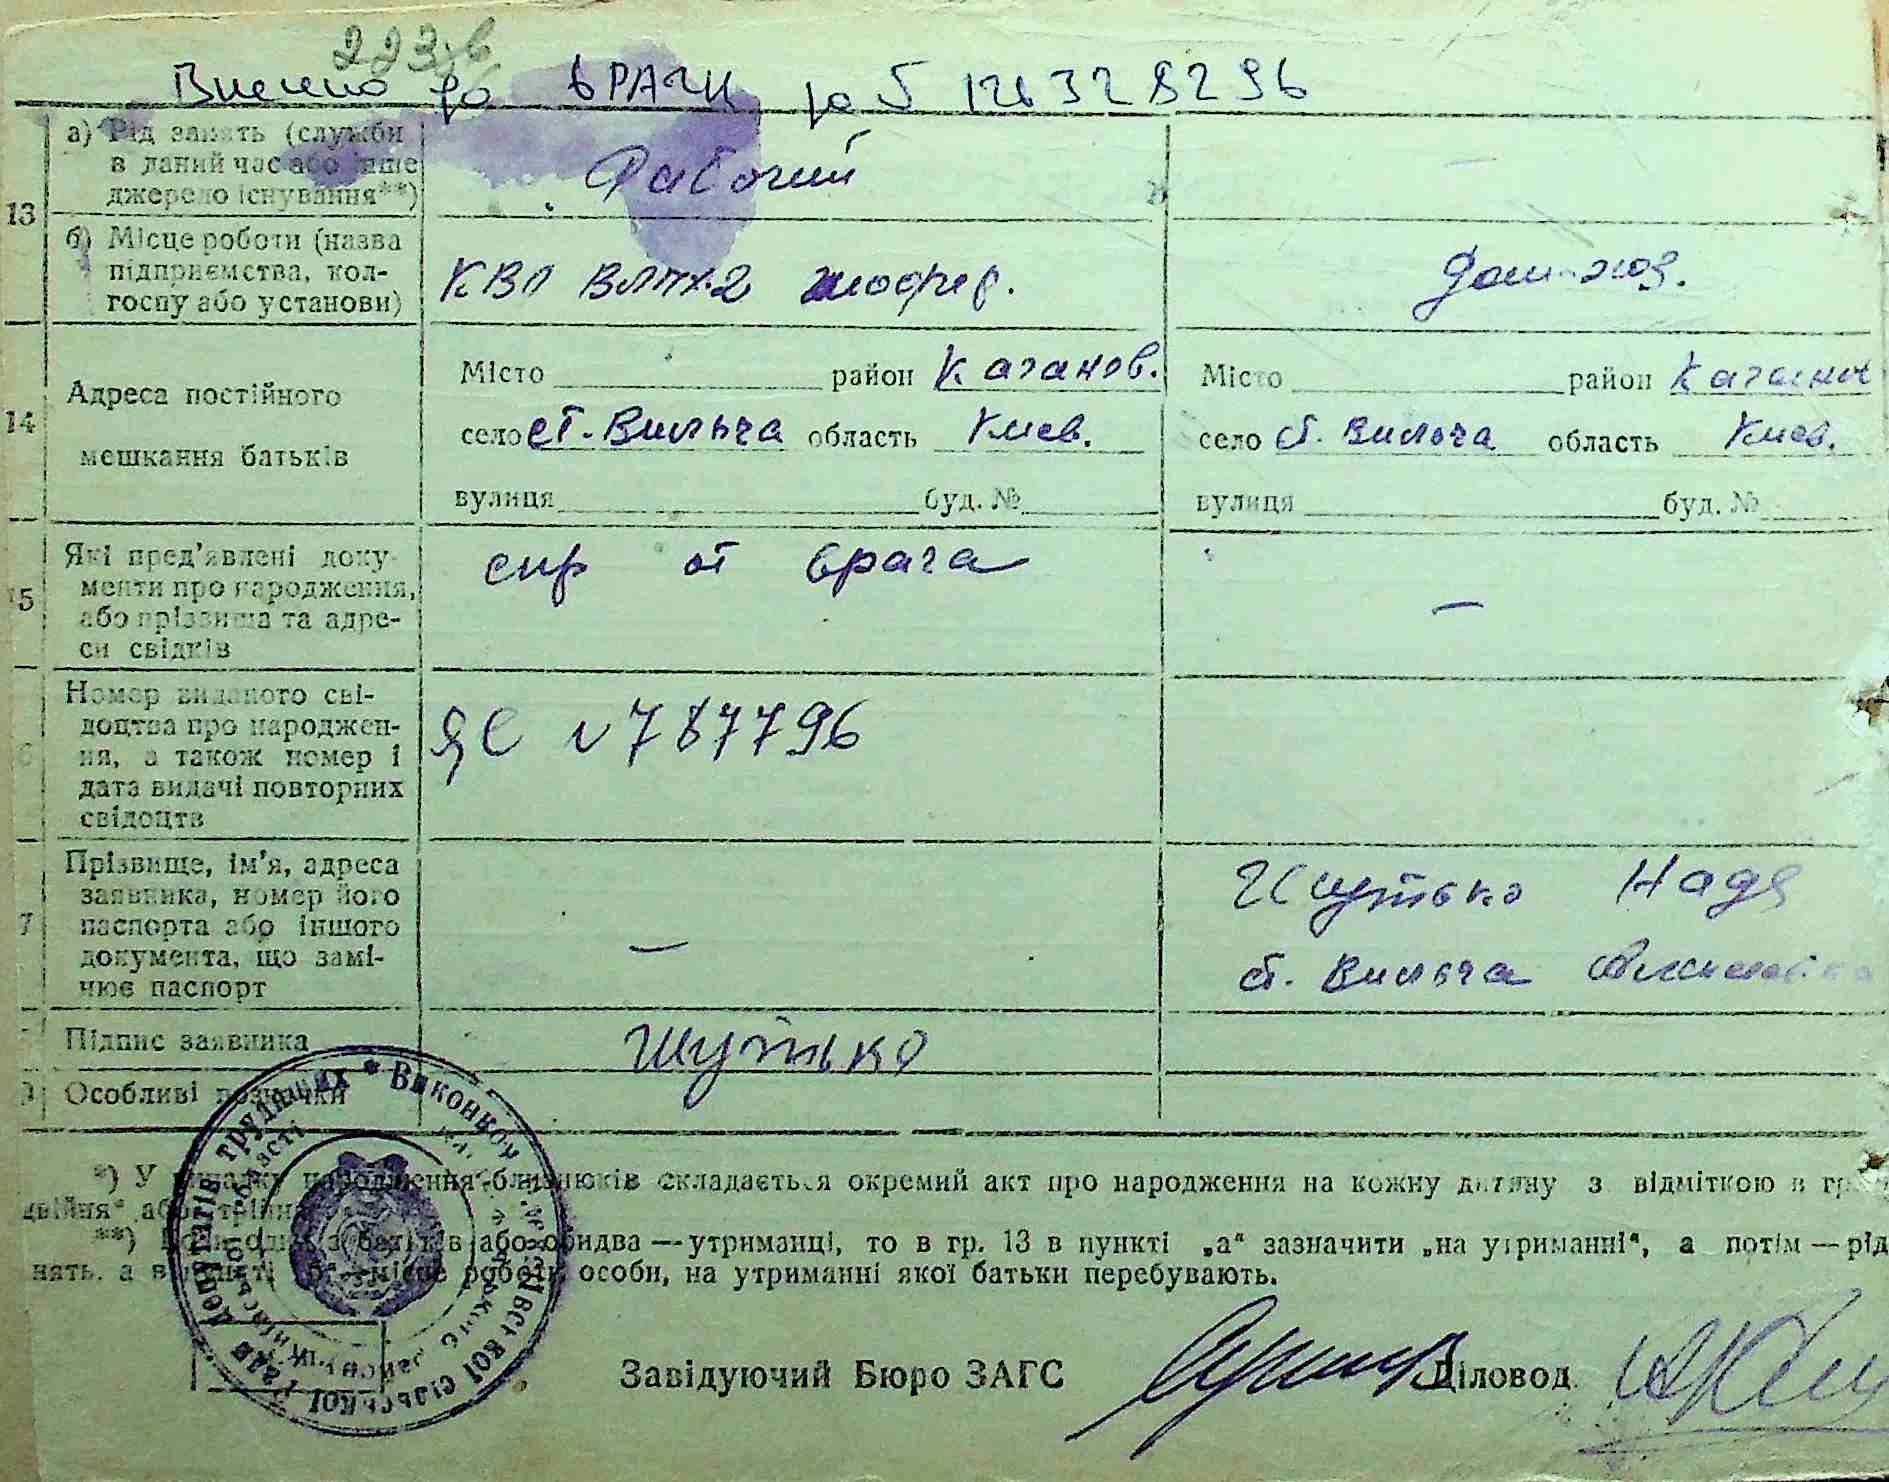 223
Внесено до ДРАЦГ за №
13
а) Рід занять (служби
в даний час або інше
джерело існування**)
Рабочий
—
б) Місце роботи (назва
підприємства, кол-
госпу або установи)
КВО ВЛПХ-2 шофер.
Дом-хоз.
14
Адреса постійного
мешкання батьків
Місто район Каганов.
село ст. Вильча область Киев.
вулиця буд. №
Місто район Каганов
село ст. Вильча область Киев.
вулиця буд. №
15
Які пред’явлені доку-
менти про народження,
або прізвища та адре-
си свідків
спр от врача
—
Номер виданого сві-
доцтва про народжен-
ня, а також номер і
дата видачі повторних
свідоцтв
ЯС № 787796
7
Прізвище, ім’я, адреса
заявника, номер його
паспорта або іншого
документа, що замі-
нює паспорт
—
Шутько Надя
ст. Вильча
Підпис заявника
Шутько
Особливі позначки
*) У випадку народження близнюків складається окремий акт про народження на кожну дитину з відміткою в гр.
двійня“ або „трійня
**) Коли один з батьків або обидва — утриманці, то в гр. 13 в пункті „а“ зазначити „на утриманні“, а потім — рід
нять, а в пункті „б“ — місце роботи особи, на утриманні якої батьки перебувають.
Виконком сільської Ради депутатів трудящих
Завідуючий Бюро ЗАГС
Діловод